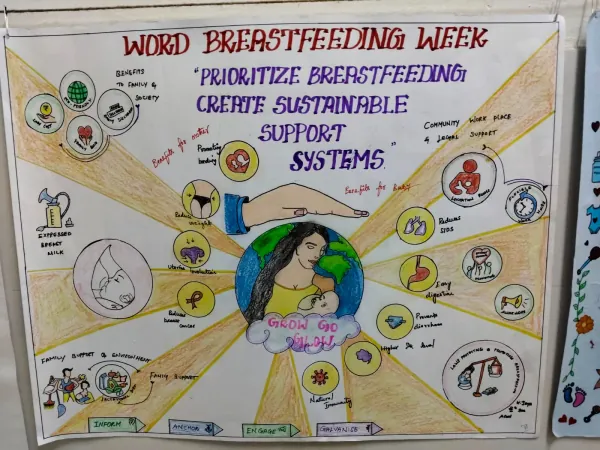 WORD BREASTFEEDING WEEK
"PRIORITIZE BREASTFEEDING
CREATE SUSTAINABLE
SUPPORT
SYSTEMS."
BENEFITS
TO FAMILY &
SOCIETY
ECO FRIENDLY
LOW COST
Benefits for mother
Promoting
bonding
COMMUNITY WORK PLACE
& LEGAL SUPPORT
LACTATION ROOMS
FLEXIBLE
WORK HOURS
Benefits for Baby
Reduces
weight
Reduces
SIDS
EXPRESSED
BREAST
MILK
Uterine
Easy
digestion
AWARENESS
Reduces
breast
cancer
Prevents
diarrhoea
GROW GO
GLOW
Higher IQ level
FAMILY SUPPORT & ENVIRONMENT
FAMILY SUPPORT
Natural
Immunity
INFORM
ANCHOR
ENGAGE
GALVANISE